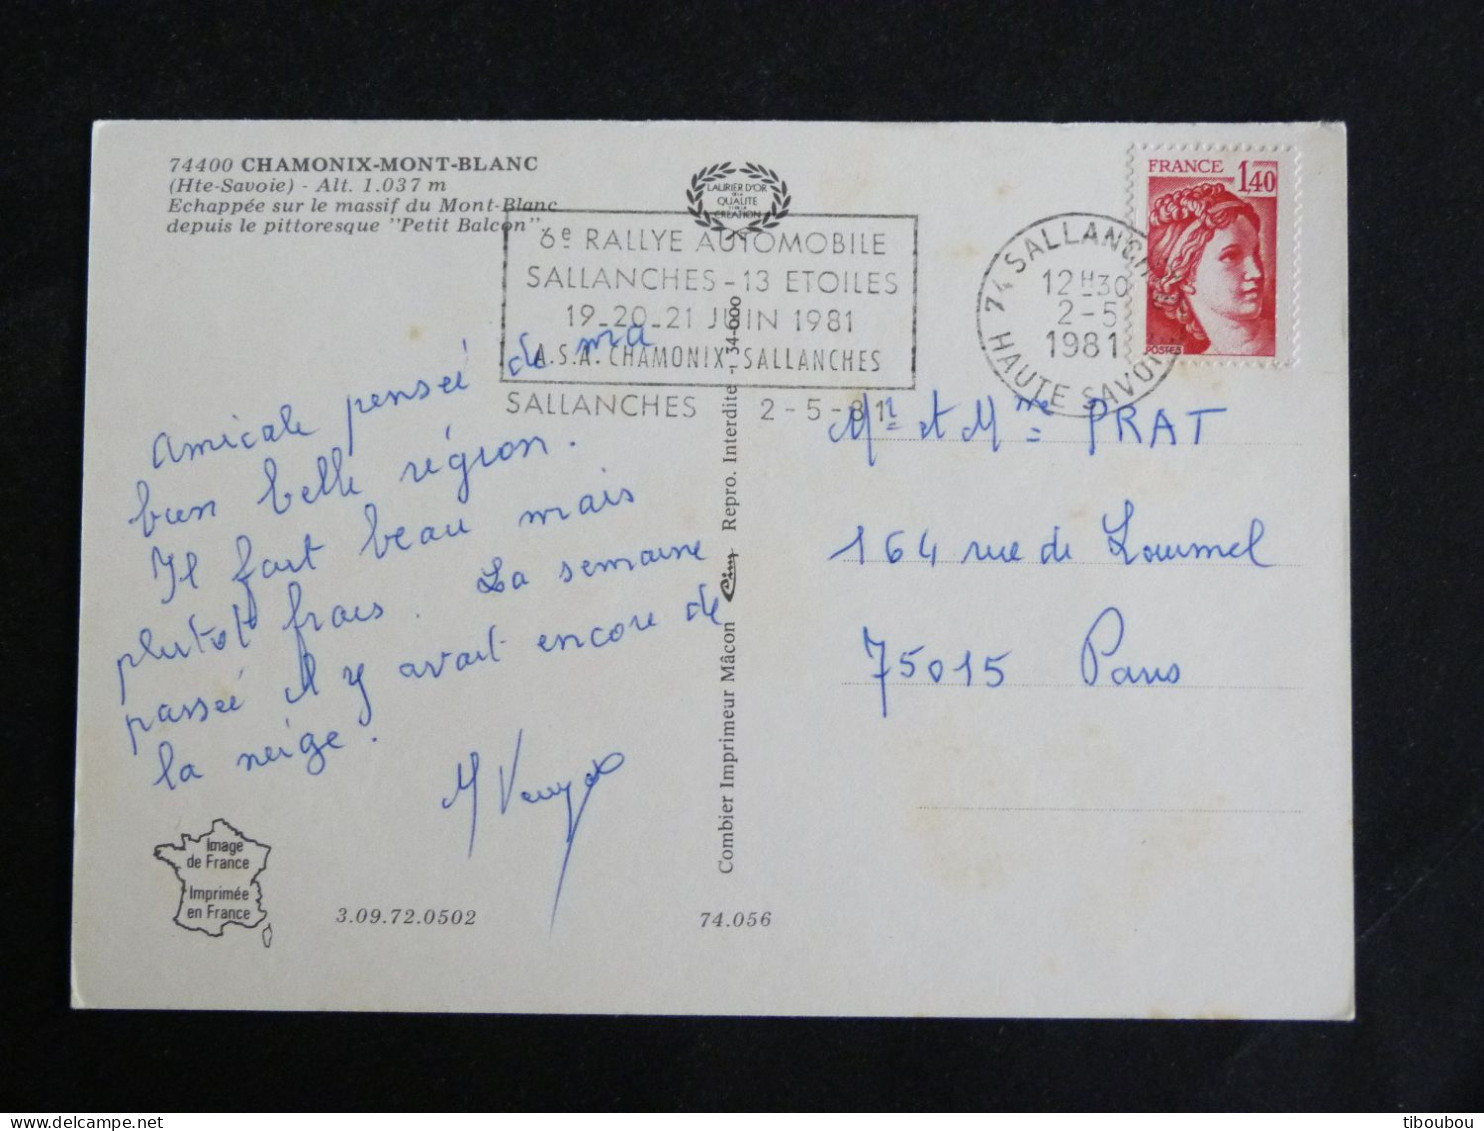 74400 CHAMONIX-MONT-BLANC
(Hte-Savoie) - Alt. 1.037 m
Echappée sur le massif du Mont-Blanc
depuis le pittoresque "Petit Balcon"
LAURIER D'OR
DE LA
QUALITÉ
CRÉATION
6e RALLYE AUTOMOBILE
SALLANCHES - 13 ETOILES
19-20-21 JUIN 1981
A.S.A. CHAMONIX SALLANCHES
SALLANCHES 2-5-81
74 SALLANCH
12H30
2-5
1981
HAUTE SAVOI
FRANCE 1,40
POSTES
Amicale penseé de ma
bien belle région.
Il fait beau mais
plutôt frais. La semaine
passeé il y avait encore de
la neige.
Mr et Mme PRAT
164 rue de Lourmel
75015 Paris
Combier Imprimeur Mâcon Cim Repro. Interdite - 34-000
Image
de France
Imprimée
en France
3.09.72.0502
74.056
tiboubou